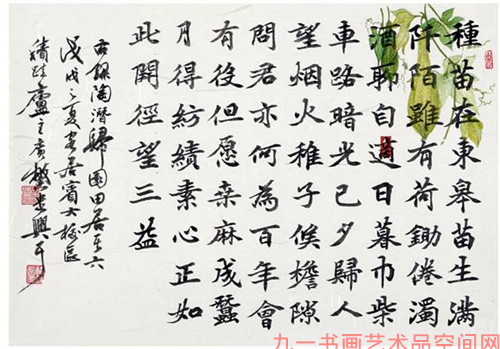 種苗在東皋苗生滿
阡陌雖有荷鋤倦濁
酒聊自適日暮巾柴
車路暗光已夕歸人
望烟火稚子候檐隙
問君亦何為百年會
有役但愿桑麻成蠶
月得紡績素心正如
此開徑望三益
右録陶潛歸園田居其六
戊戌之夏客居賓大校區
九一书画艺术品空间网